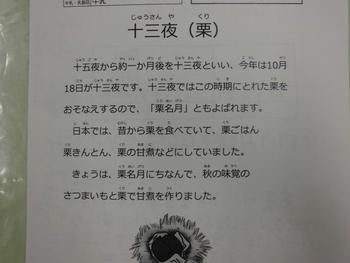 十三夜（栗）
十五夜から約一か月後を十三夜といい、今年は10月
18日が十三夜です。十三夜ではこの時期にとれた栗を
おそなえするので、「栗名月」ともよばれます。
日本では、昔から栗を食べていて、栗ごはん
栗きんとん、栗の甘煮などにしていました。
きょうは、栗名月にちなんで、秋の味覚の
さつまいもと栗で甘煮を作りました。